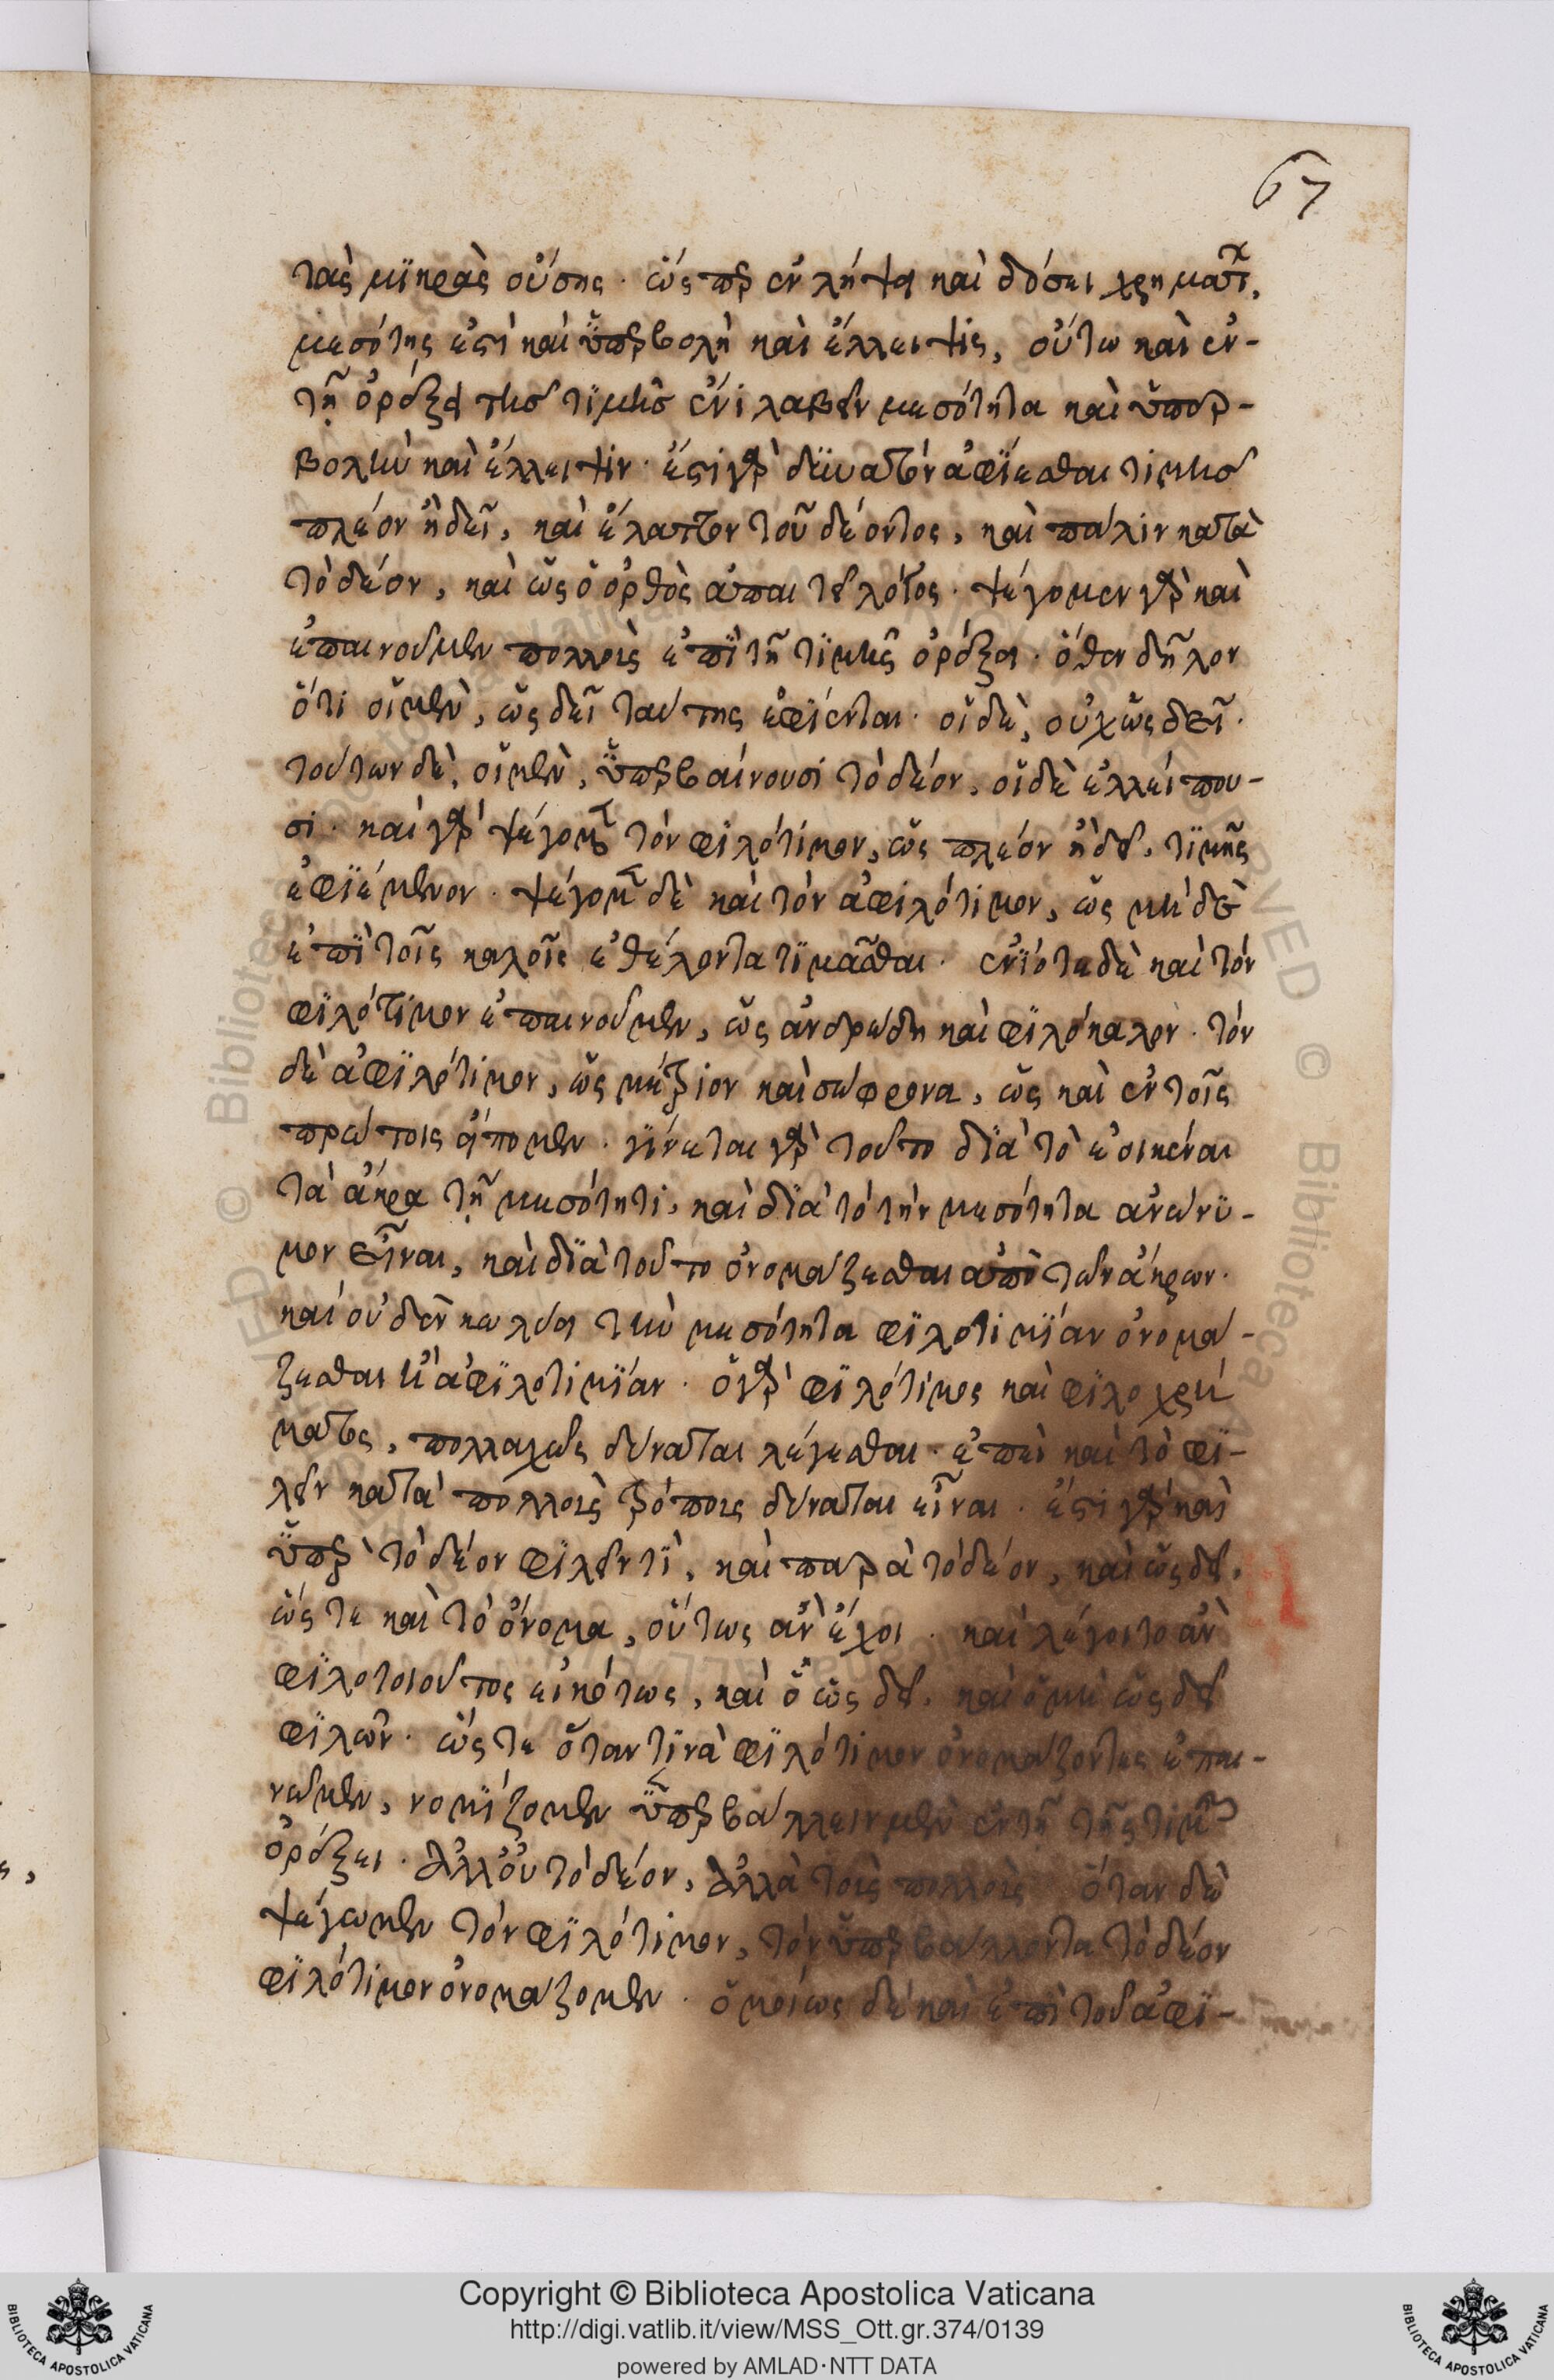 67
τὰς μικρὰς οὔσης. ὥσπερ ἐν λήψει καὶ δόσει χρημάτων,
μεσότης ἐστὶ καὶ ὑπερβολὴ καὶ ἔλλειψις, οὕτω καὶ ἐν-
τῇ ὀρέξει τῆς τιμῆς ἔνι λαβεῖν μεσότητα καὶ ὑπερ-
βολὴν καὶ ἔλλειψιν. ἔστι γὰρ δυνατὸν ἀφίεσθαι τιμῆς
πλέον ἢ δεῖ, καὶ ἔλαττον τοῦ δέοντος, καὶ πάλιν κατὰ
τὸ δέον, καὶ ὡς ὁ ὀρθὸς ἀπαιτεῖ λόγος. ψέγομεν γὰρ καὶ
ἐπαινοῦμεν πολλοὺς ἐπὶ τῇ τιμῆς ὀρέξει. ὅθεν δῆλον
ὅτι οἱ μὲν, ὡς δεῖ ταύτης ἐφίενται. οἱ δὲ, οὐχ ὡς δεῖ.
τούτων δὲ, οἱ μὲν, ὑπερβαίνουσι τὸ δέον, οἱ δὲ ἐλλείπου-
σι. καὶ γὰρ ψέγομεν τὸν φιλότιμον, ὡς πλέον ἢ δεῖ, τιμῆς
ἐφιέμενον. ψέγομεν δὲ καὶ τὸν ἀφιλότιμον, ὡς μὴ δὲ
ἐπὶ τοῖς καλοῖς ἐθέλοντα τιμᾶσθαι. ἐνίοτε δὲ καὶ τὸν
φιλότιμον ἐπαινοῦμεν, ὡς ἀνδρώδη καὶ φιλόκαλον. τὸν
δὲ ἀφιλότιμον, ὡς μέτριον καὶ σώφρονα, ὡς καὶ ἐν τοῖς
πρώτοις εἴπομεν. γίνεται γὰρ τοῦτο διὰ τὸ ἐοικέναι
τὰ ἄκρα τῇ μεσότητι, καὶ διὰ τὸ τὴν μεσότητα ἀνώνυ-
μον εἶναι, καὶ διὰ τοῦτο ὀνομάζεσθαι ἀπὸ τῶν ἄκρων.
καὶ οὐδὲν κωλύει τὴν μεσότητα φιλοτιμίαν ὀνομά-
ζεσθαι ἢ ἀφιλοτιμίαν. ὁ γὰρ φιλότιμος καὶ φιλοχρή
ματος, πολλαχῶς δύναται λέγεσθαι. ἐπεὶ καὶ τὸ φι-
λεῖν κατὰ πολλοὺς τρόπους δύναται εἶναι. ἔστι γὰρ καὶ
ὑπὲρ τὸ δέον φιλεῖν τὶ, καὶ παρὰ τὸ δέον, καὶ ὡς δεῖ.
ὥστε καὶ τὸ ὄνομα, οὕτως ἂν ἔχοι. καὶ λέγοιτο ἂν
φιλοτοιοῦτος εἰκότως, καὶ ὁ ὡς δεῖ. καὶ ὁ μὴ ὡς δεῖ
φιλῶν. ὥστε ὅταν τινὰ φιλότιμον ὀνομάζοντες ἐπαι-
νῶμεν, νομίζομεν ὑπερβάλλειν μὲν ἐν τῇ τῆς τιμῆς
ὀρέξει. ἀλλ' οὐ τὸ δέον, ἀλλὰ τοὺς πολλοὺς. ὅταν δὲ
ψέγωμεν τὸν φιλότιμον, τὸν ὑπερβάλλοντα τὸ δέον
φιλότιμον ὀνομάζομεν. ὁμοίως δὲ καὶ ἐπὶ τοῦ ἀφι-
Copyright © Biblioteca Apostolica Vaticana
http://digi.vatlib.it/view/MSS_Ott.gr.374/0139
powered by AMLAD·NTT DATA
BIBLIOTECA APOSTOLICA VATICANA
BIBLIOTECA APOSTOLICA VATICANA